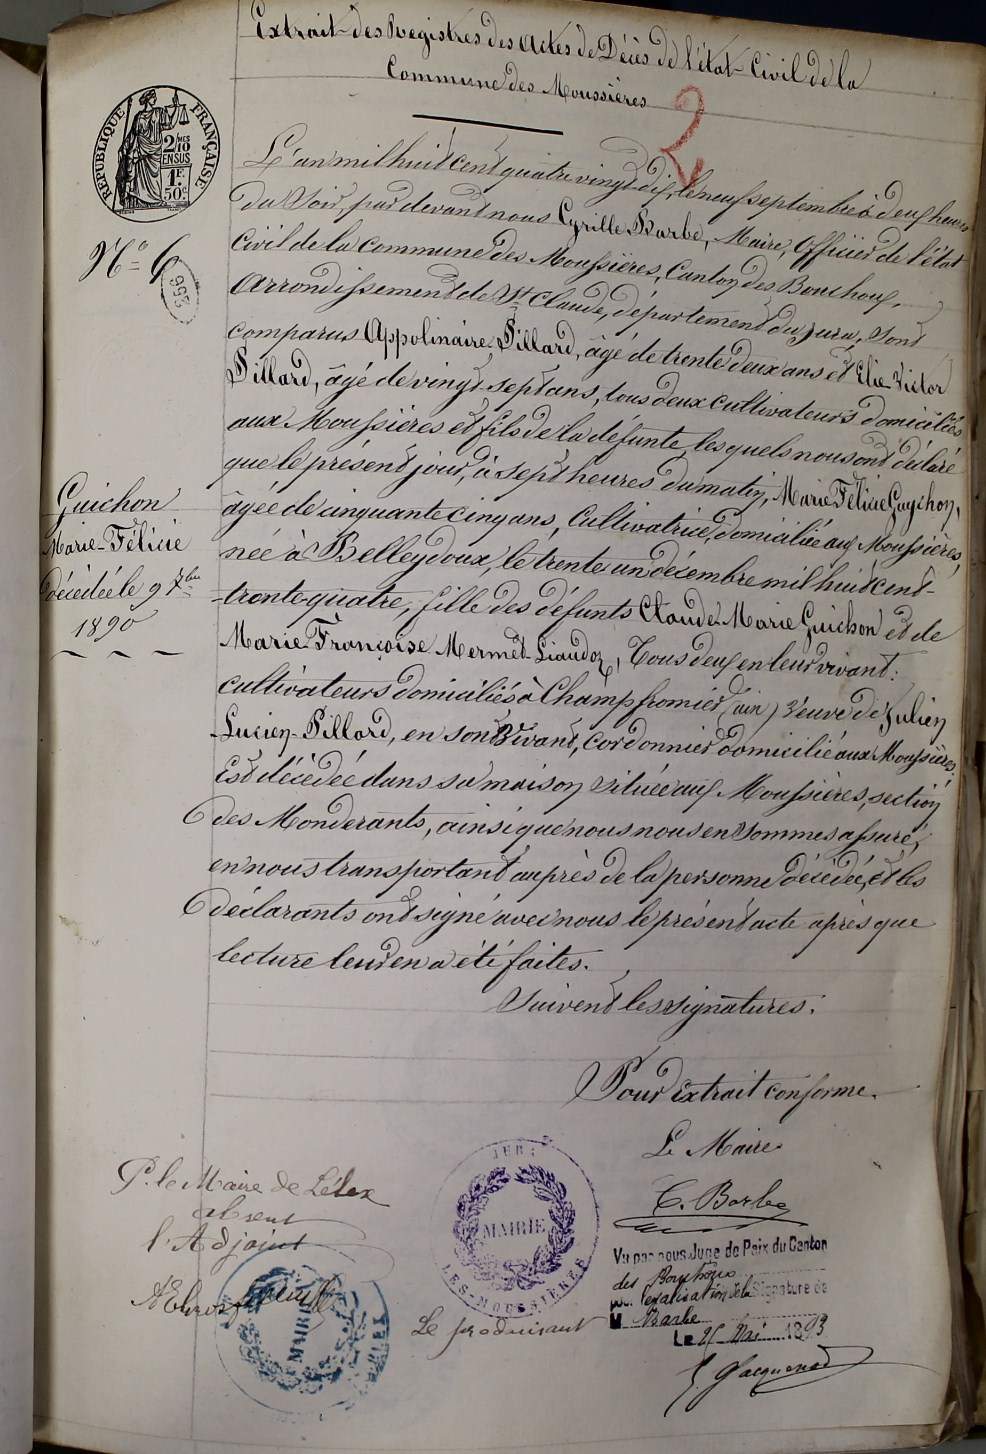 Extrait des Registres des Actes de Décès de l'état-Civil de la
Commune des Moussières
2
RÉPUBLIQUE FRANÇAISE
2/10
EN SUS
1F
50c
L'an mil huit cent quatre vingt-dix, le neuf septembre à deux heures
du Soir, par devant nous Cyrille Barbe, Maire, Officier de l'état
Civil de la Commune des Moussières, Canton des Bouchoux,
N° 6
356
Arrondissement de St Claude, département du Jura, Sont
comparus Appolinaire Pillard, âgé de trente deux ans et Elie Victor
Pillard, âgé de vingt-sept ans, tous deux cultivateurs domiciliés
aux Moussières et fils de la défunte, lesquels nous ont déclaré
que le présent jour, à sept heures du matin, Marie Félicie Guichon,
âgée de cinquante cinq ans, Cultivatrice, domiciliée aux Moussières,
Guichon
Marie-Félicie
décédée le 9 7bre
1890
née à Belleydoux, le trente un décembre mil huit cent-
trente-quatre, fille des défunts Claude-Marie Guichon et de
Marie-Françoise Mermet-Liaudoz, Tous deux en leur vivant:
cultivateurs domiciliés à Champfromier (ain) Veuve de Julien
Lucien Pillard, en son Vivant, Cordonnier domicilié aux Moussières.
Est décédée dans sa maison située aux Moussières, section
des Monderants, ainsi que nous nous en sommes assuré,
en nous transportant auprès de la personne décédée, et les
déclarants ont signé avec nous le présent acte après que
lecture leur en a été faites.
Suivent les signatures.
Pour Extrait conforme.
Le Maire
C. Barbe
P. le Maire de Lélex
absent
l'Adjoint
MAIRIE
JURA
MAIRIE
LES-MOUSSIERES
Le produisant
Vu par nous Juge de Paix du Canton
des Bouchoux
pour légalisation de la Signature de
M Barbe
Le 25 Mai 1893